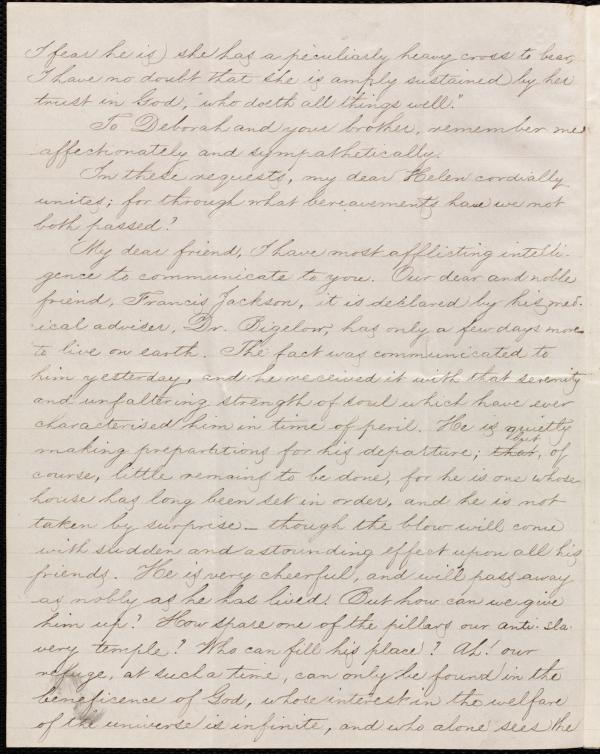 I fear he is) she has a peculiarly heavy cross to bear,
I have no doubt that she is amply sustained by her
trust in God, "who doeth all things well."
To Deborah and your brother, remember me
affectionately and sympathetically.
In these requests, my dear Helen cordially
unites; for through what bereavements have we not
both passed?
My dear friend, I have most afflicting intelli-
gence to communicate to you. Our dear and noble
friend, Francis Jackson, it is declared by his med-
ical adviser, Dr. Bigelow, has only a few days more
to live on earth. The fact was communicated to
him yesterday, and he received it with that serenity
and unfaltering strength of soul which have ever
characterised him in time of peril. He is quietly
making preparations for his departure; but, of
course, little remains to be done, for he is one whose
house has long been set in order, and he is not
taken by surprise – though the blow will come
with sudden and astounding effect upon all his
friends. He is very cheerful, and will pass away
as nobly as he has lived. But how can we give
him up? How spare one of the pillars our anti-sla-
very temple? Who can fill his place? Ah! our
refuge, at such a time, can only be found in the
beneficence of God, whose interest in the welfare
of the universe is infinite, and who alone sees the